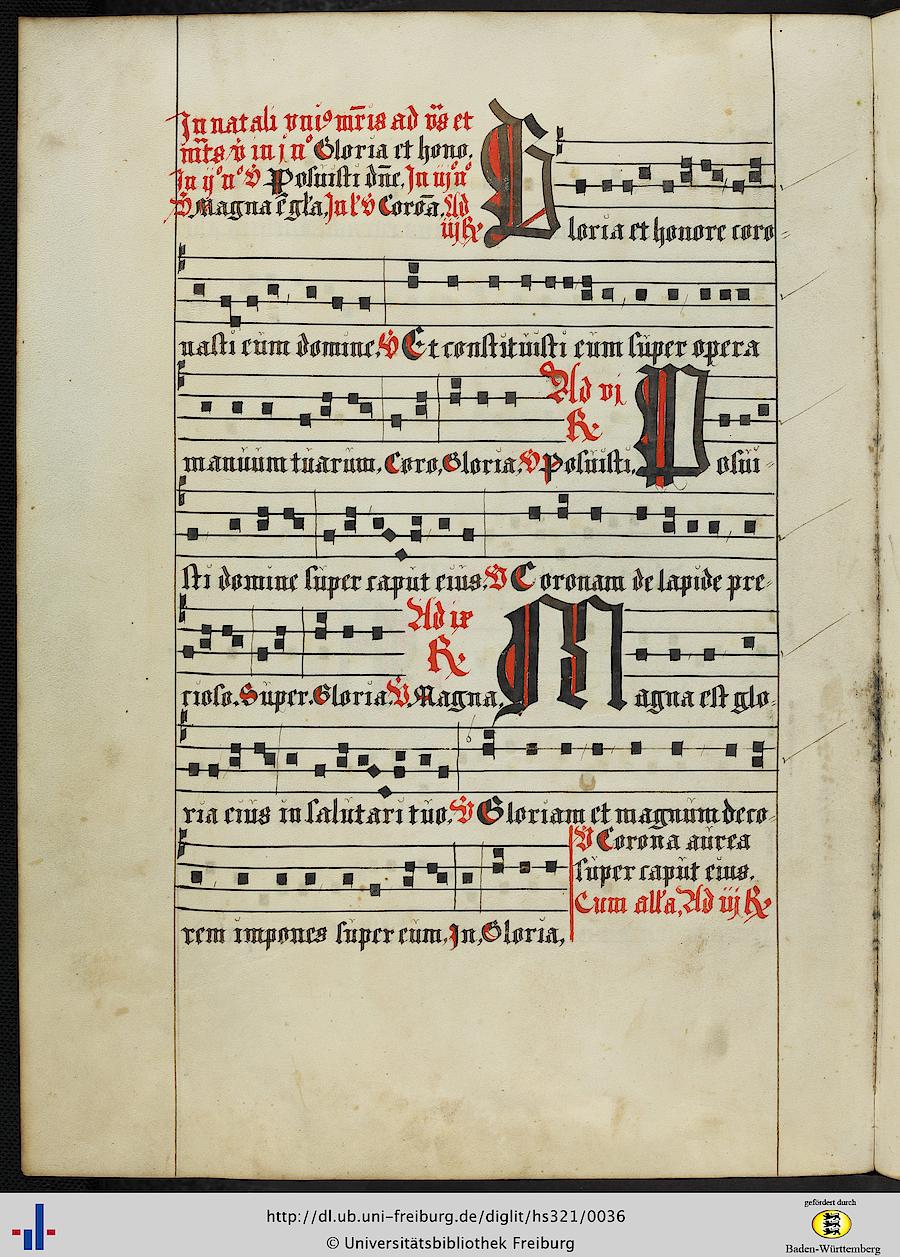 In natali vni9 mr̄is ad v̄s et
mt̄s v̓ in j n° Gloria et hono.
In ij° n° V Posuisti dn̄e, In iij n°
V Magna ē gl'a, In l' V Corōa, Ad
iij R
Gloria et honore coro
nasti eum domine, V Et constituisti eum super opera
manuum tuarum, Coro, Gloria, V Posuisti,
Ad vj
R
Posui
sti domine super caput eius, V Coronam de lapide pre
cioso. Super. Gloria. V Magna,
Ad ix
R
Magna est glo
ria eius in salutari tuo, V Gloriam et magnum deco
rem impones super eum, In, Gloria,
V Corona aurea
super caput eius.
Cum all'a, Ad iij R
http://dl.ub.uni-freiburg.de/diglit/hs321/0036
© Universitätsbibliothek Freiburg
gefördert durch
Baden-Württemberg